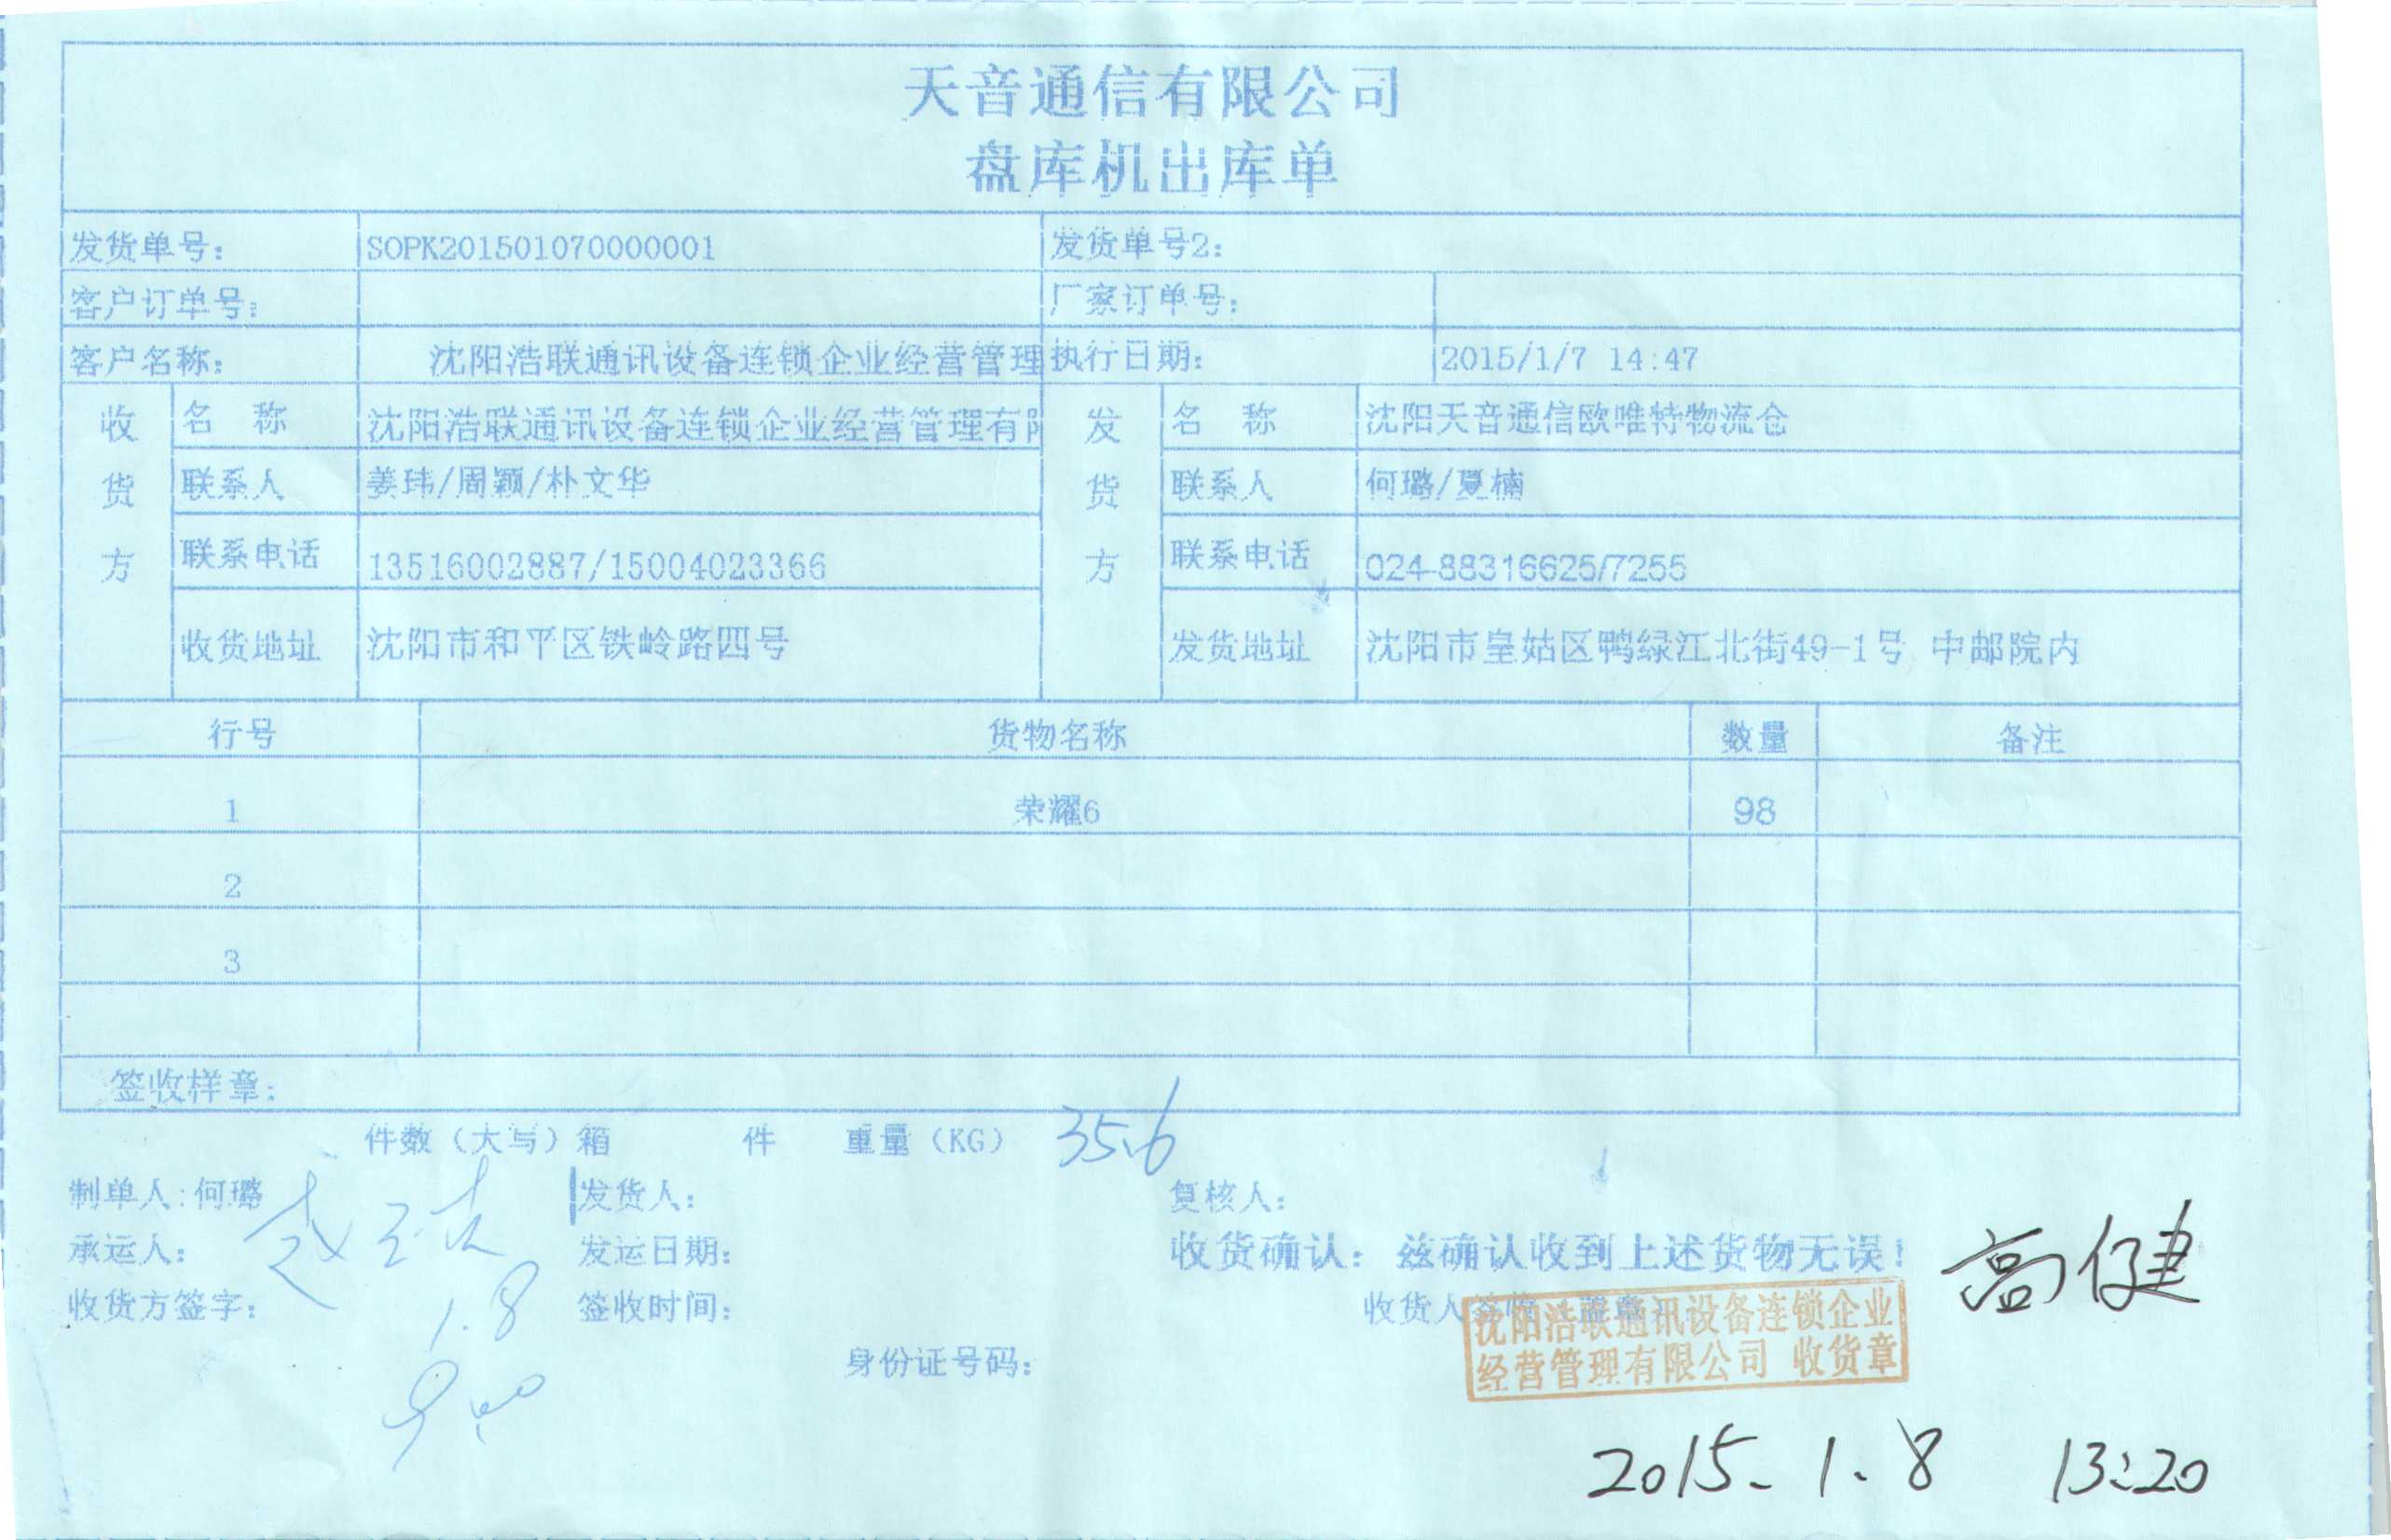 天音通信有限公司
盘库机出库单
发货单号： SOPK201501070000001 发货单号2：
客户订单号： 厂家订单号：
客户名称： 沈阳浩联通讯设备连锁企业经营管理 执行日期： 2015/1/7 14:47
收货方 名 称 沈阳浩联通讯设备连锁企业经营管理有限 发货方 名 称 沈阳天音通信欧唯特物流仓
联系人 姜玮/周颖/朴文华 联系人 何璐/夏楠
联系电话 13516002887/15004023366 联系电话 024-88316625/7255
收货地址 沈阳市和平区铁岭路四号 发货地址 沈阳市皇姑区鸭绿江北街49-1号 中邮院内
行号 货物名称 数量 备注
1 荣耀6 98
2
3
签收样章：
件数（大写）箱 件 重量（KG） 35.6
制单人:何璐 发货人： 复核人：
承运人： 发运日期： 收货确认： 兹确认收到上述货物无误！ 高健
收货方签字： 1.8 签收时间： 收货人
身份证号码：
沈阳浩联通讯设备连锁企业
经营管理有限公司 收货章
2015.1.8 13:20